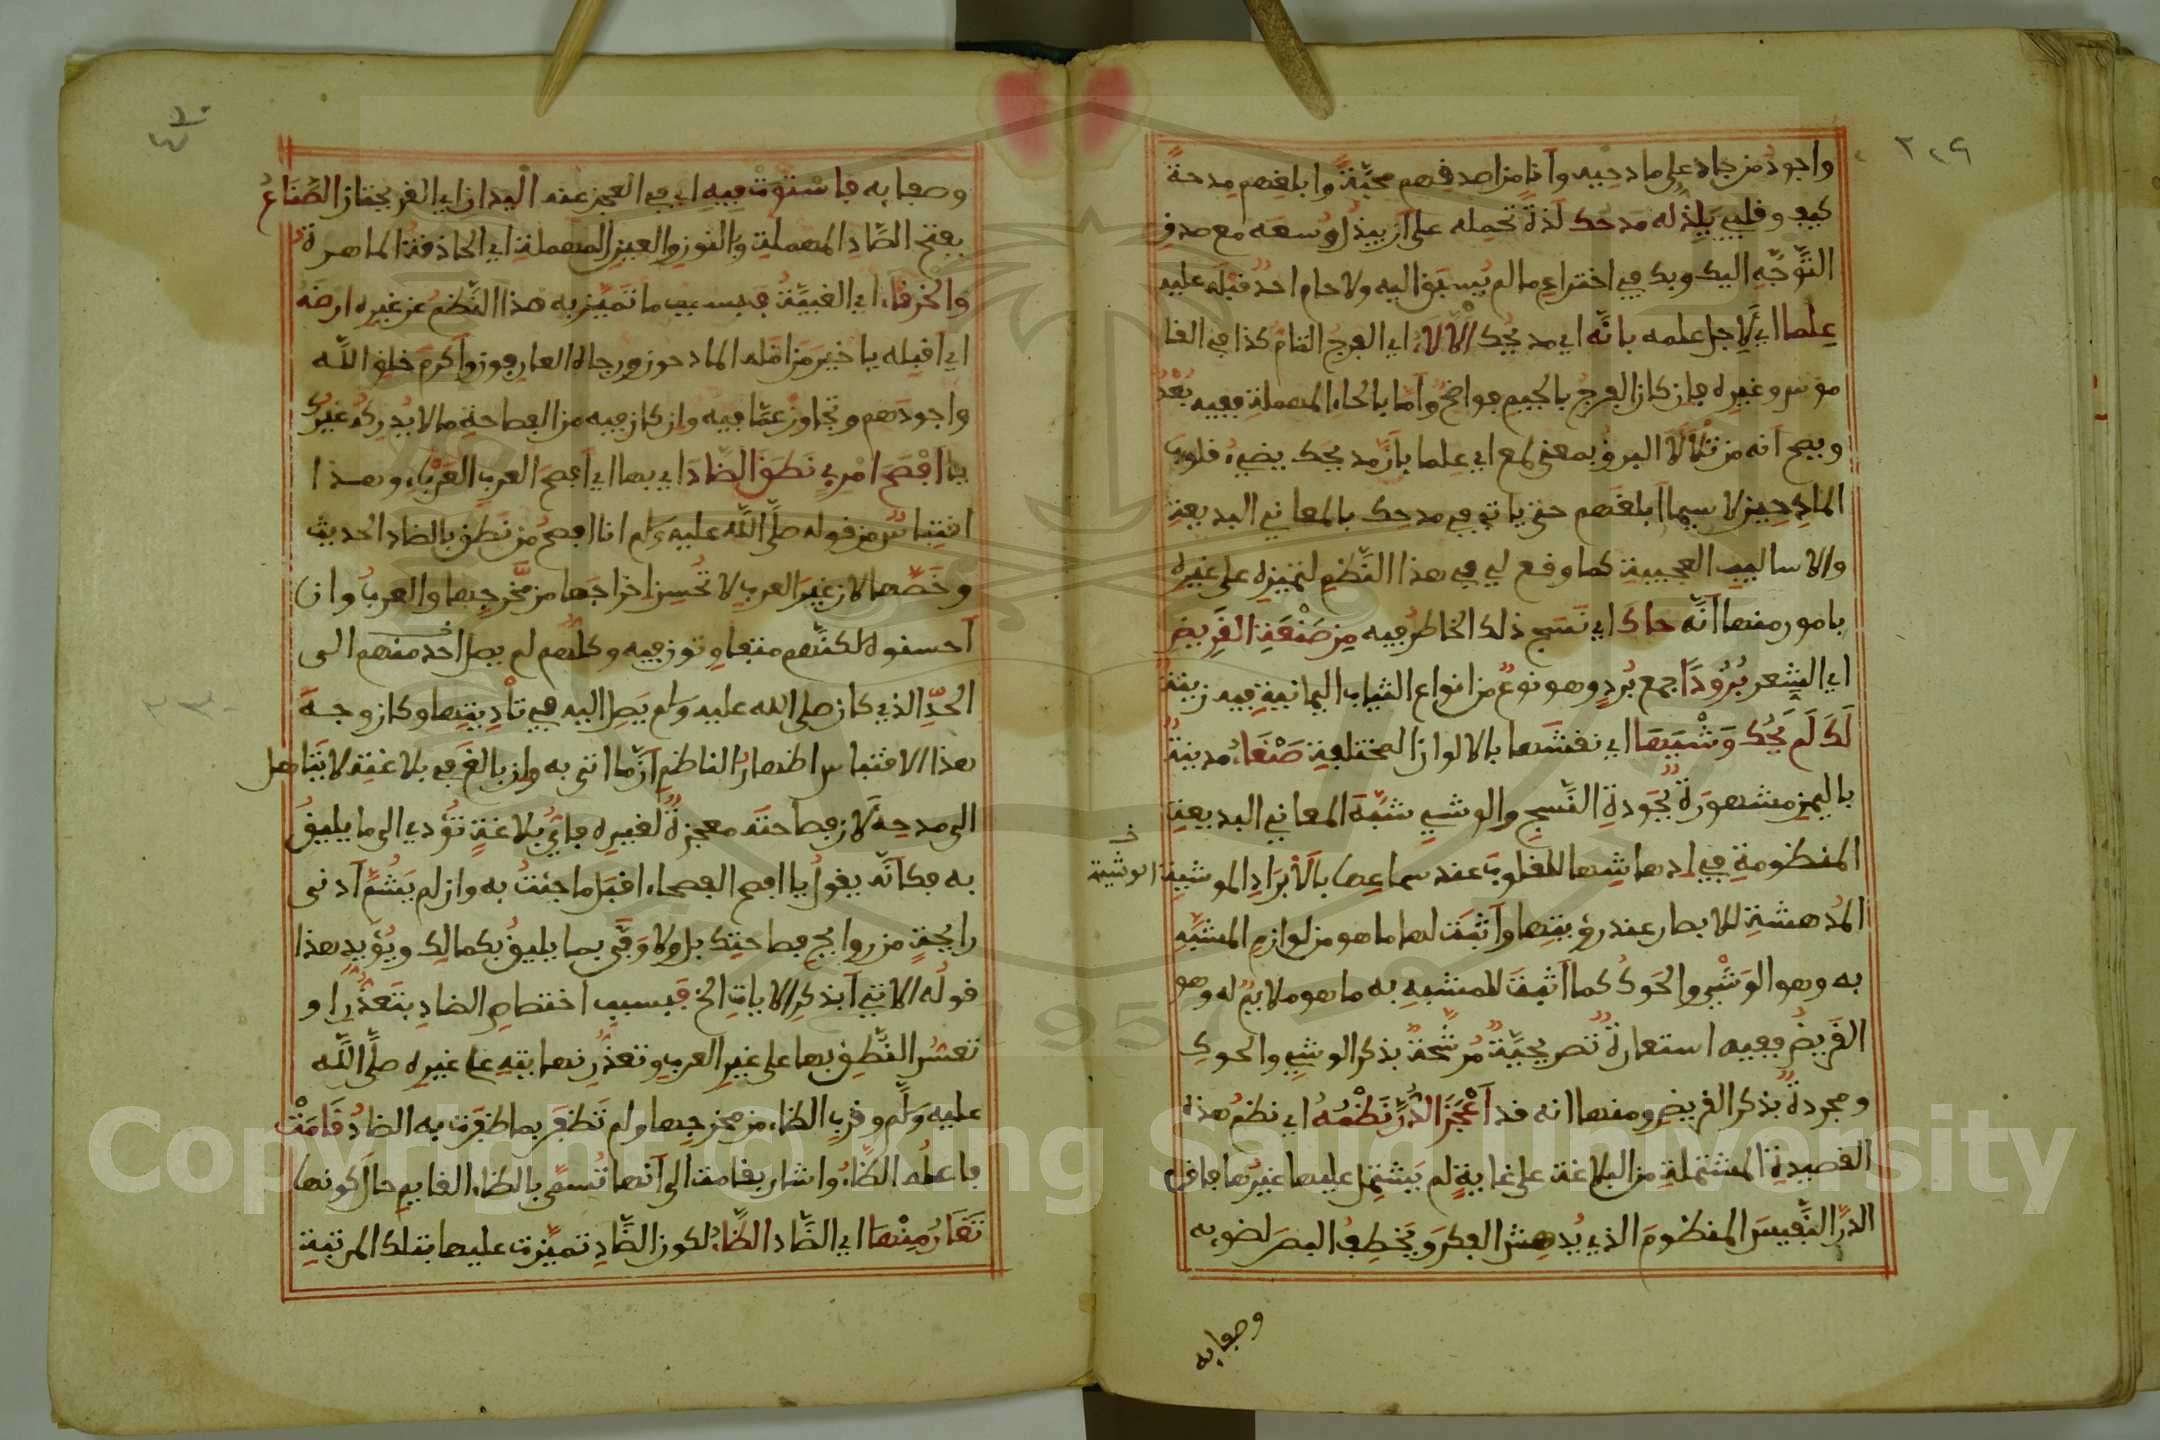 ٣٢٩
واجود من جاد على مادحيه وانا من اصدقهم محبة وابلغهم مدحة
كيف وقلبي يلذ له مدحك لذة تحمله على ان يبذل وسعه مع صدق
التوجه اليك وبك في اختراع ما لم يسبق اليه ولا حام احد قبله عليه
علما اي لاجل علمه بانه اي مديحك الألاء اي الفرح التام كذا في القا
موس وغيره فان كان الفرج بالجيم فواضح واما بالحاء المهملة ففيه بعد
ويصح انه من تلألأ البرق بمعنى لمع اي علما بان مديحك يضيء قلوب
المادحين لا سيما ابلغهم حتى ياتي في مدحك بالمعاني البديعة
والاساليب العجيبة كما وقع لي في هذا النظم لتميزه على غيره
بامور منها انه حاك اي نسج ذلك الخاطر فيه من صنعة القريض
اي الشعر برودا جمع برد وهو نوع من انواع الثياب اليمانية فيه زينة
لك لم يحك وشيها اي نقشها بالالوان المختلفة صنعاء مدينة
باليمن مشهورة بجودة النسج والوشي شبه المعاني البديعة
المنظومة في ادهاشها للقلوب عند سماعها بالابراد الموشية
خ
الوشية
المدهشة للابصار عند رؤيتها واثبت لها ما هو من لوازم المشبه
به وهو الوشي والحوك كما اثبت للمشبه به ما هو ملايم له وهو
القريض ففيه استعارة تصريحية مرشحة بذكر الوشي والحوك
ومجردة بذكر القريض ومنها انه قد اعجز الدر نظمه اي نظم هذه
القصيدة المشتملة من البلاغة على غاية لم يشتمل عليها غيرها فاق
الدر النفيس المنظوم الذي يدهش الفكر ويخطف البصر لضوئه
وصفايه
وصفايه فاستوت فيه اي في العجز عنه اليدان اي الفريقتان الصناع
بفتح الصاد المهملة والنون والعين المهملة اي الحاذقة الماهرة
والخرقاء اي الغبية فبسبب ما تميز به هذا النظم عن غيره ارضه
اي اقبله يا خير من امله المادحون ورجاه العارفون واكرم خلق الله
واجودهم وتجاوز عما فيه وان كان فيه من الفصاحة ما لا يدركه غيرك
يا افصح امرئ نطق الضاد اي بها اي افصح العرب العرباء وهذا
اقتباس من قوله صلى الله عليه وسلم انا افصح من نطق بالضاد الحديث
وخصها لان غير العرب لا تحسن اخراجها من مخرجها والعرب وان
احسنوه لكنهم متفاوتون فيه وكلهم لم يصل احد منهم الى
الحد الذي كان صلى الله عليه وسلم يصل اليه في تأديتها وكان وجه
هذا الاقتباس اظهار الناظم ان ما اتى به وان بالغ في بلاغته لا يتاهل
الى مدحه لان فصاحته معجزة لغيره فاي بلاغة تؤدي الى ما يليق
به فكأنه يقول يا افصح الفصحاء اقبل ما جئت به وان لم يشم ادنى
رايحة من روايح فصاحتك بل ولا وفى بما يليق بكمالك ويؤيد هذا
قوله الاتي ابذكر الايات الخ فبسبب اختصاص الضاد بتعذر او
تعسر النطق بها على غير العرب وتعذر نهايته على غيره صلى الله
عليه وسلم وقرب الظاء من مخرجها ولم تظفر بما ظفرت به الضاد قامت
فاعله الظاء واشار بقامت الى انها تسمى بالظاء القايم حال كونها
تغار منها اي الضاد الظاء لكون الضاد تميزت عليها بتلك المرتبة